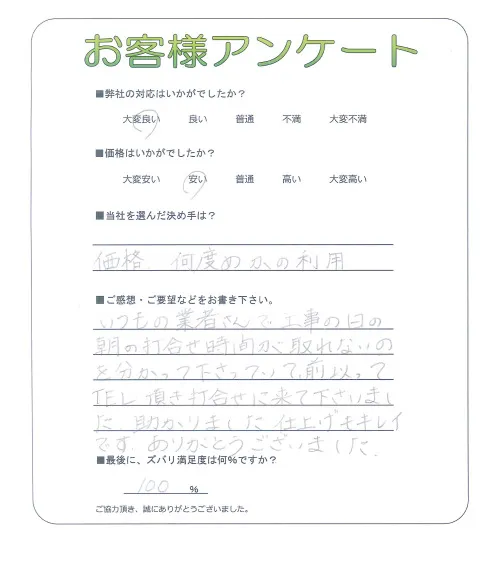 お客様アンケート
■弊社の対応はいかがでしたか?
大変良い 良い 普通 不満 大変不満
■価格はいかがでしたか?
大変安い 安い 普通 高い 大変高い
■当社を選んだ決め手は?
価格、何度めかの利用
■ご感想・ご要望などをお書き下さい。
いつもの業者さんで工事の日の
朝の打合せ時間が取れないの
を分かって下さっていて、前以って
TEL頂き打合せに来て下さいまし
た。助かりました。仕上げもキレイ
です。ありがとうございました。
■最後に、ズバリ満足度は何%ですか?
100 %
ご協力頂き、誠にありがとうございました。